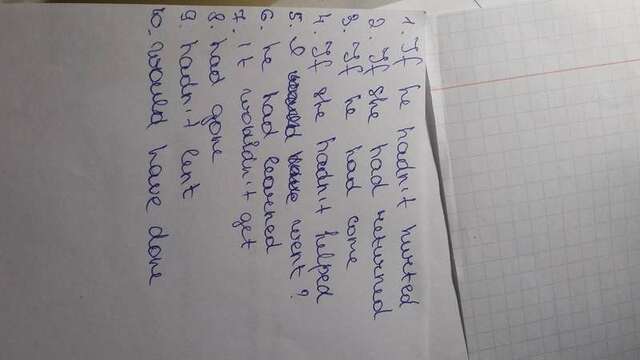 1. If he hadn't hurted
2. If she had returned
3. If he had come
4. If she hadn't helped
5. went?
6. he had learned
7. it wouldn't get
8. had gone
9. hadn't lent
10. would have done